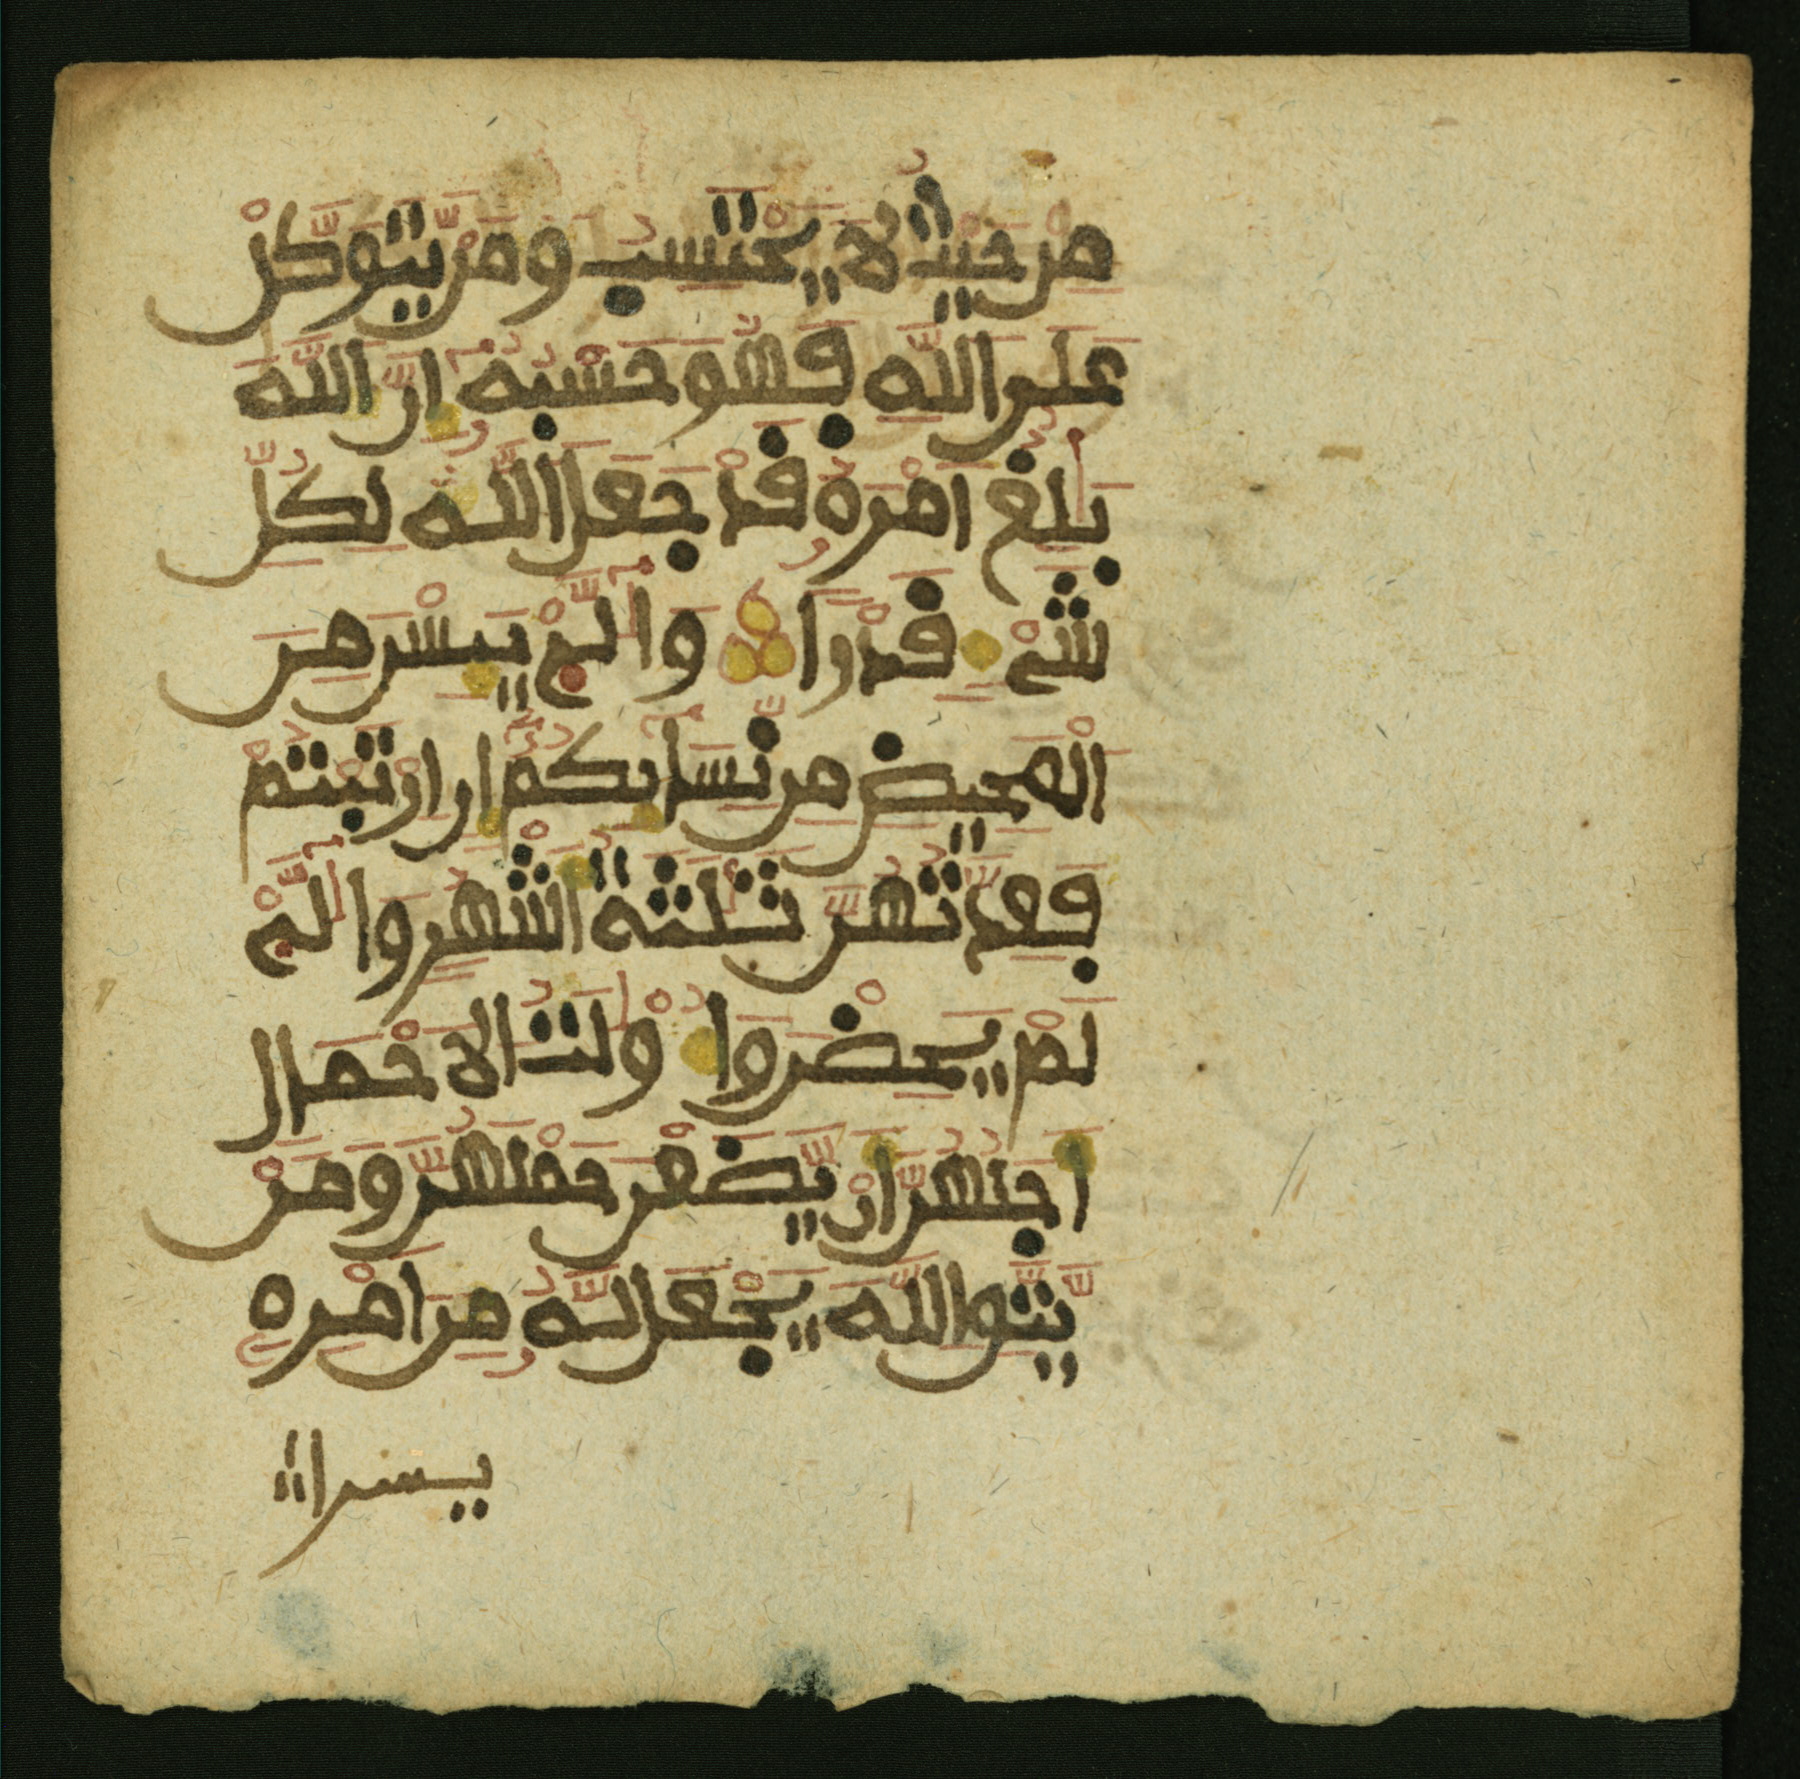 مِنْ حَيْثُ لَا يَحْتَسِبُ وَمَنْ يَّتَوَكَّلْ
عَلَى اللَّهِ فَهُوَ حَسْبُهُ اِنَّ اللَّهَ
بَٰلِغٌ اَمْرَهُ قَدْ جَعَلَ اللَّهُ لِكُلِّ
شَيْءٍ قَدْرًا وَالَّٰۓ يَيِسْنَ مِنَ
الْمَحِيضِ مِن نِّسَآيِكُمُ اِنِ ارْتَبْتُمْ
فَعِدَّتُهُنَّ ثَلَٰثَةُ اَشْهُرٍ وَالَّٰۓ
لَمْ يَحِضْنَ وَاُوْلَٰتُ الَاحْمَالِ
اَجَلُهُنَّ اَنْ يَّضَعْنَ حَمْلَهُنَّ وَمَنْ
يَّتَّقِ اللَّهَ يَجْعَل لَّهُ مِنَ اَمْرِهِ
يسرا